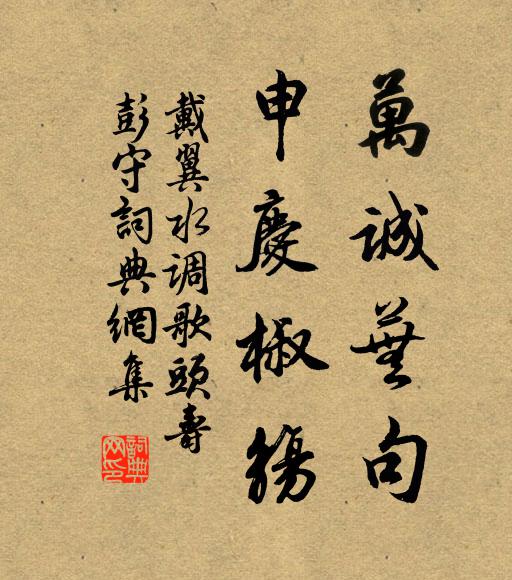 萬誠蕪句
申慶椒觴
戴翼水调歌頭壽
彭守詞典網集
詞典網印